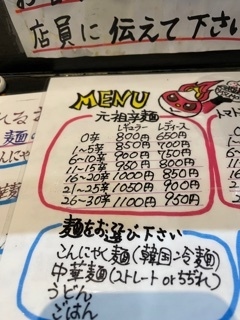 店員に伝えて下さい
MENU
元祖辛麺
レギュラー レディース
0辛 800円 650円
1~5辛 850円 700円
6~10辛 900円 750円
11~15辛 950円 800円
16~20辛 1000円 850円
21~25辛 1050円 900円
26~30辛 1100円 950円
麺をお選び下さい
こんにゃく麺(韓国冷麺)
中華麺(ストレート orちぢれ)
うどん
ごはん